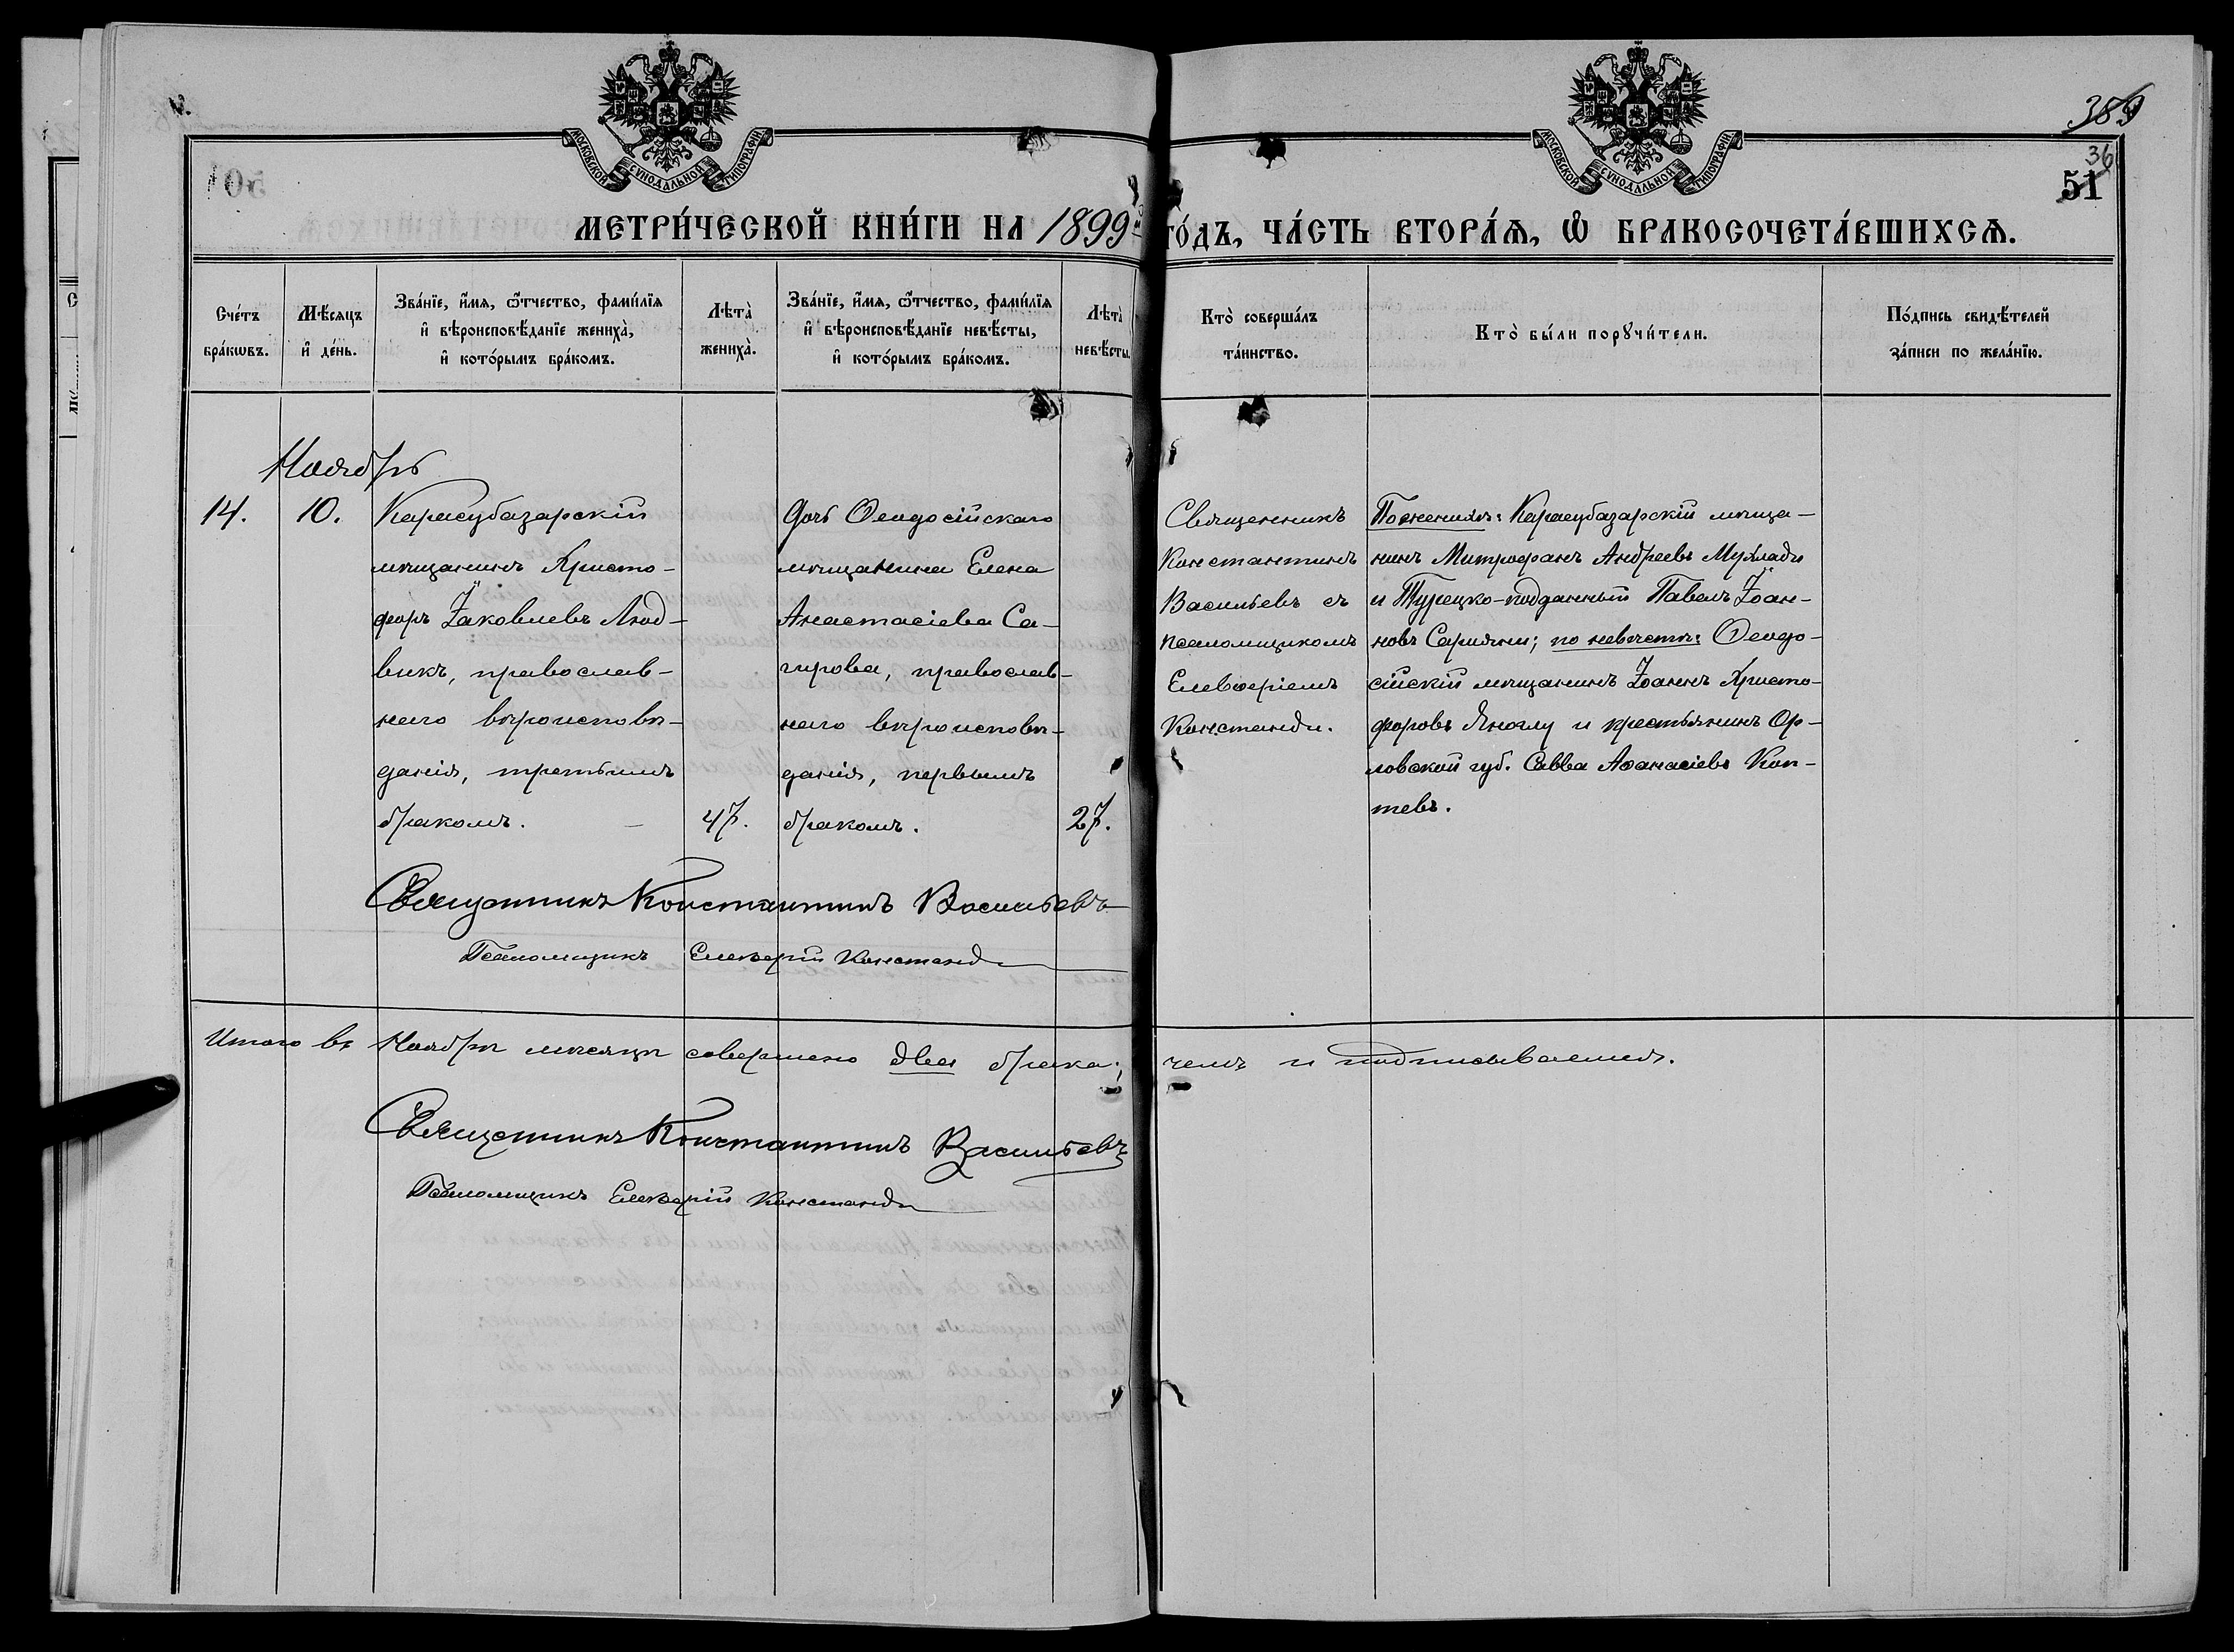 389
36
51
МОСКОВСКОЙ СѴНОДАЛЬНОЙ ТИПОГРАФІИ
МОСКОВСКОЙ СѴНОДАЛЬНОЙ ТИПОГРАФІИ
МЕТРИ́ЧЕСКОЙ КНИ́ГИ НА 1899 й ГО́ДЪ, ЧА́СТЬ ВТОРА́Ѧ, Ѽ БРАКОСОЧЕТА́ВШИХСѦ.
Сче́тъ бра́кѡвъ.
Мѣ́сяцъ и҆ де́нь.
Зва́нїе, и҆́мя, ѻ҆́тчество, фами́лїя и҆ вѣроисповѣ́данїе жениха̀, и҆ кото́рымъ бра́комъ.
Лѣта̀ жениха̀.
Зва́нїе, и҆́мя, ѻ҆́тчество, фами́лїя и҆ вѣроисповѣ́данїе невѣ́сты, и҆ кото́рымъ бра́комъ.
Лѣта̀ невѣ́сты.
Кто̀ соверша́лъ та́инство.
Кто̀ бы́ли порꙋчи́тели.
По́дпись свидѣ́телей за́писи по жела́нїю.
Ноябрь
14.
10.
Карасубазарскій
мѣщанинъ Христо-
форъ Іаковлевъ Люд-
викъ, православ-
наго вѣроисповѣ-
данія, третьимъ
бракомъ. –
47.
дочь Ѳеодосійскаго
мѣщанина Елена
Анастасіева Са-
гирова, православ-
наго вѣроисповѣ-
данія, первымъ
бракомъ.
27.
Священникъ
Константинъ
Васильевъ съ
псаломщикомъ
Елевѳеріемъ
Констанди.
По женихѣ: Карасубазарскій мѣща-
нинъ Митрофанъ Андреевъ Мухлади
и Турецко-подданный Павелъ Іоан-
новъ Сарияни; по невѣстѣ: Ѳеодо-
сійскій мѣщанинъ Іоаннъ Христо-
форовъ Яноглу и крестьянинъ Ор-
ловской губ. Савва Аѳанасіевъ Коп-
тевъ.
Священникъ Константинъ Васильевъ
Псаломщикъ Елевѳерій Констанди
Итого въ Ноябрѣ мѣсяцѣ совершено два брака; чемъ и подписываемся.
Священникъ Константинъ Васильевъ
Псаломщикъ Елевѳерій Констанди